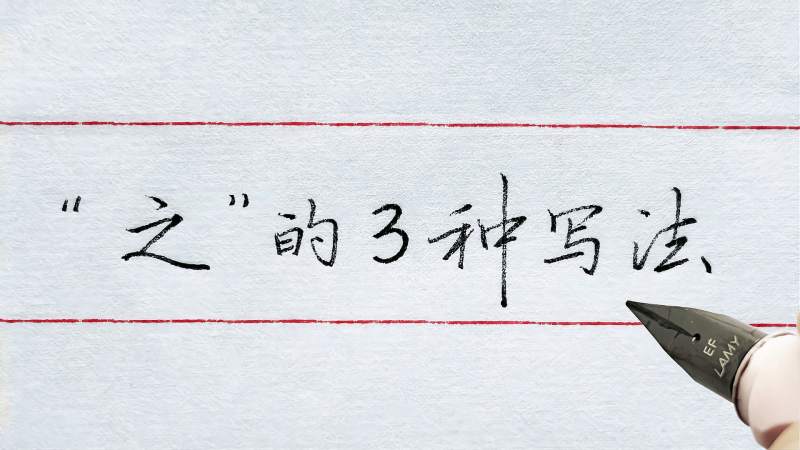 “之”的3种写法
EF
LAMY